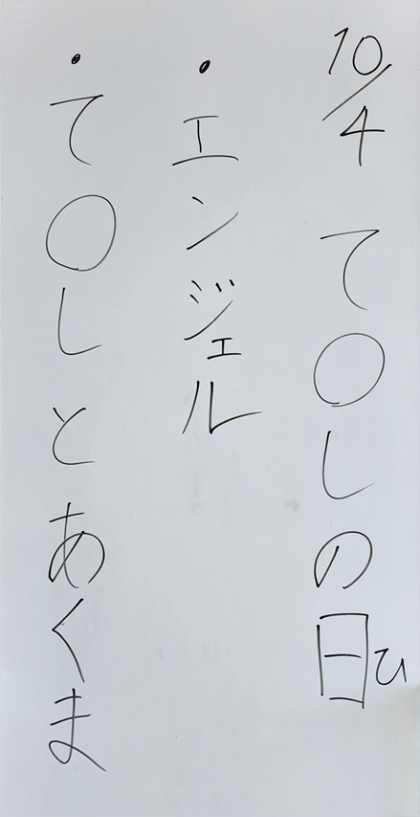 10/4 て〇しの日ひ
・エンジェル
・て〇しとあくま